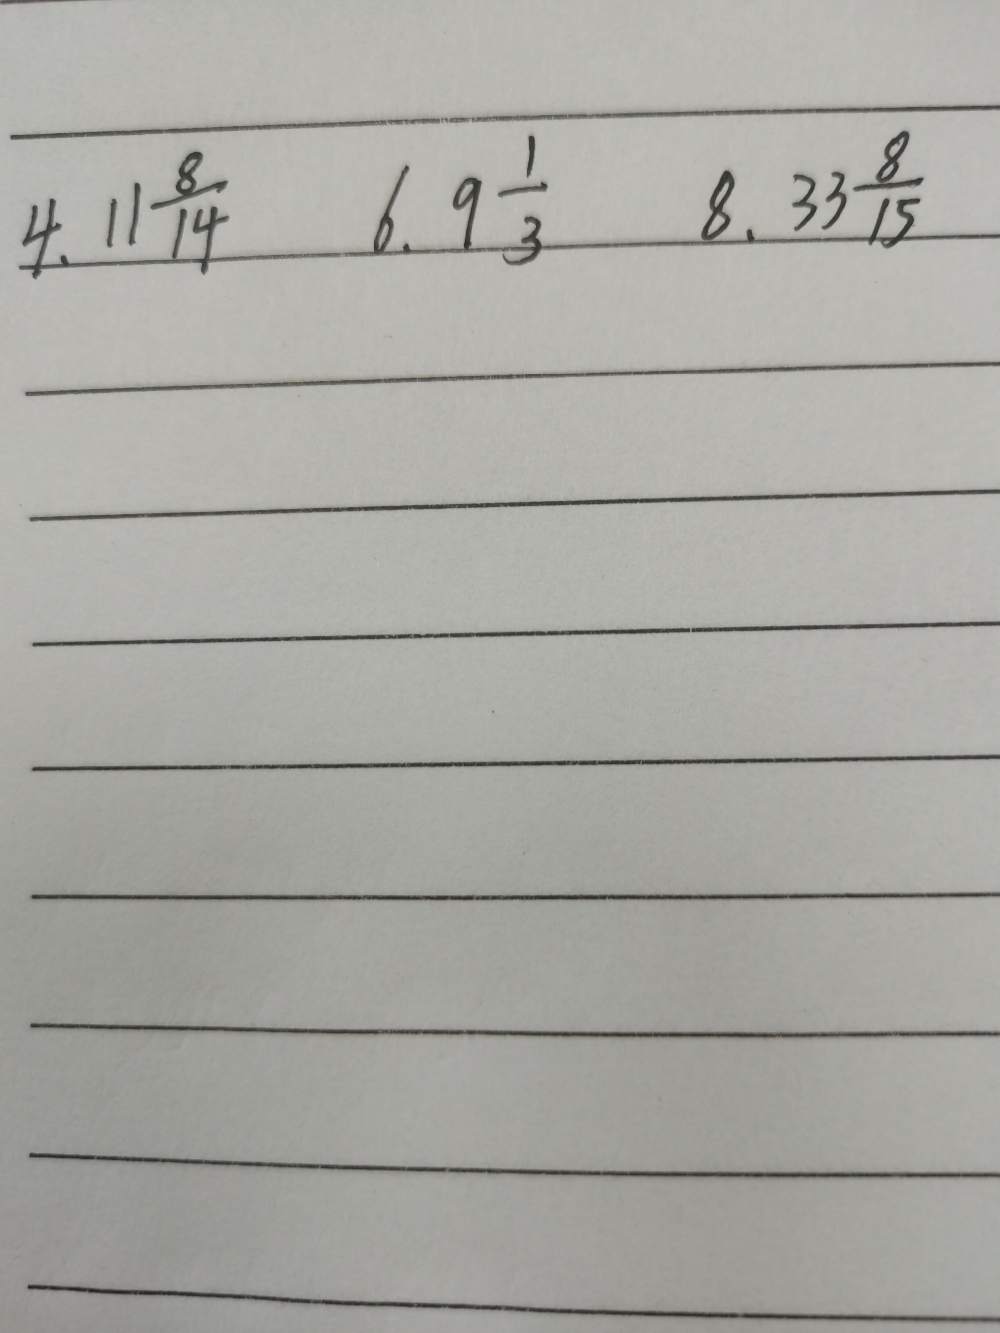 4. 11 8/14 6. 9 1/3 8. 33 8/15